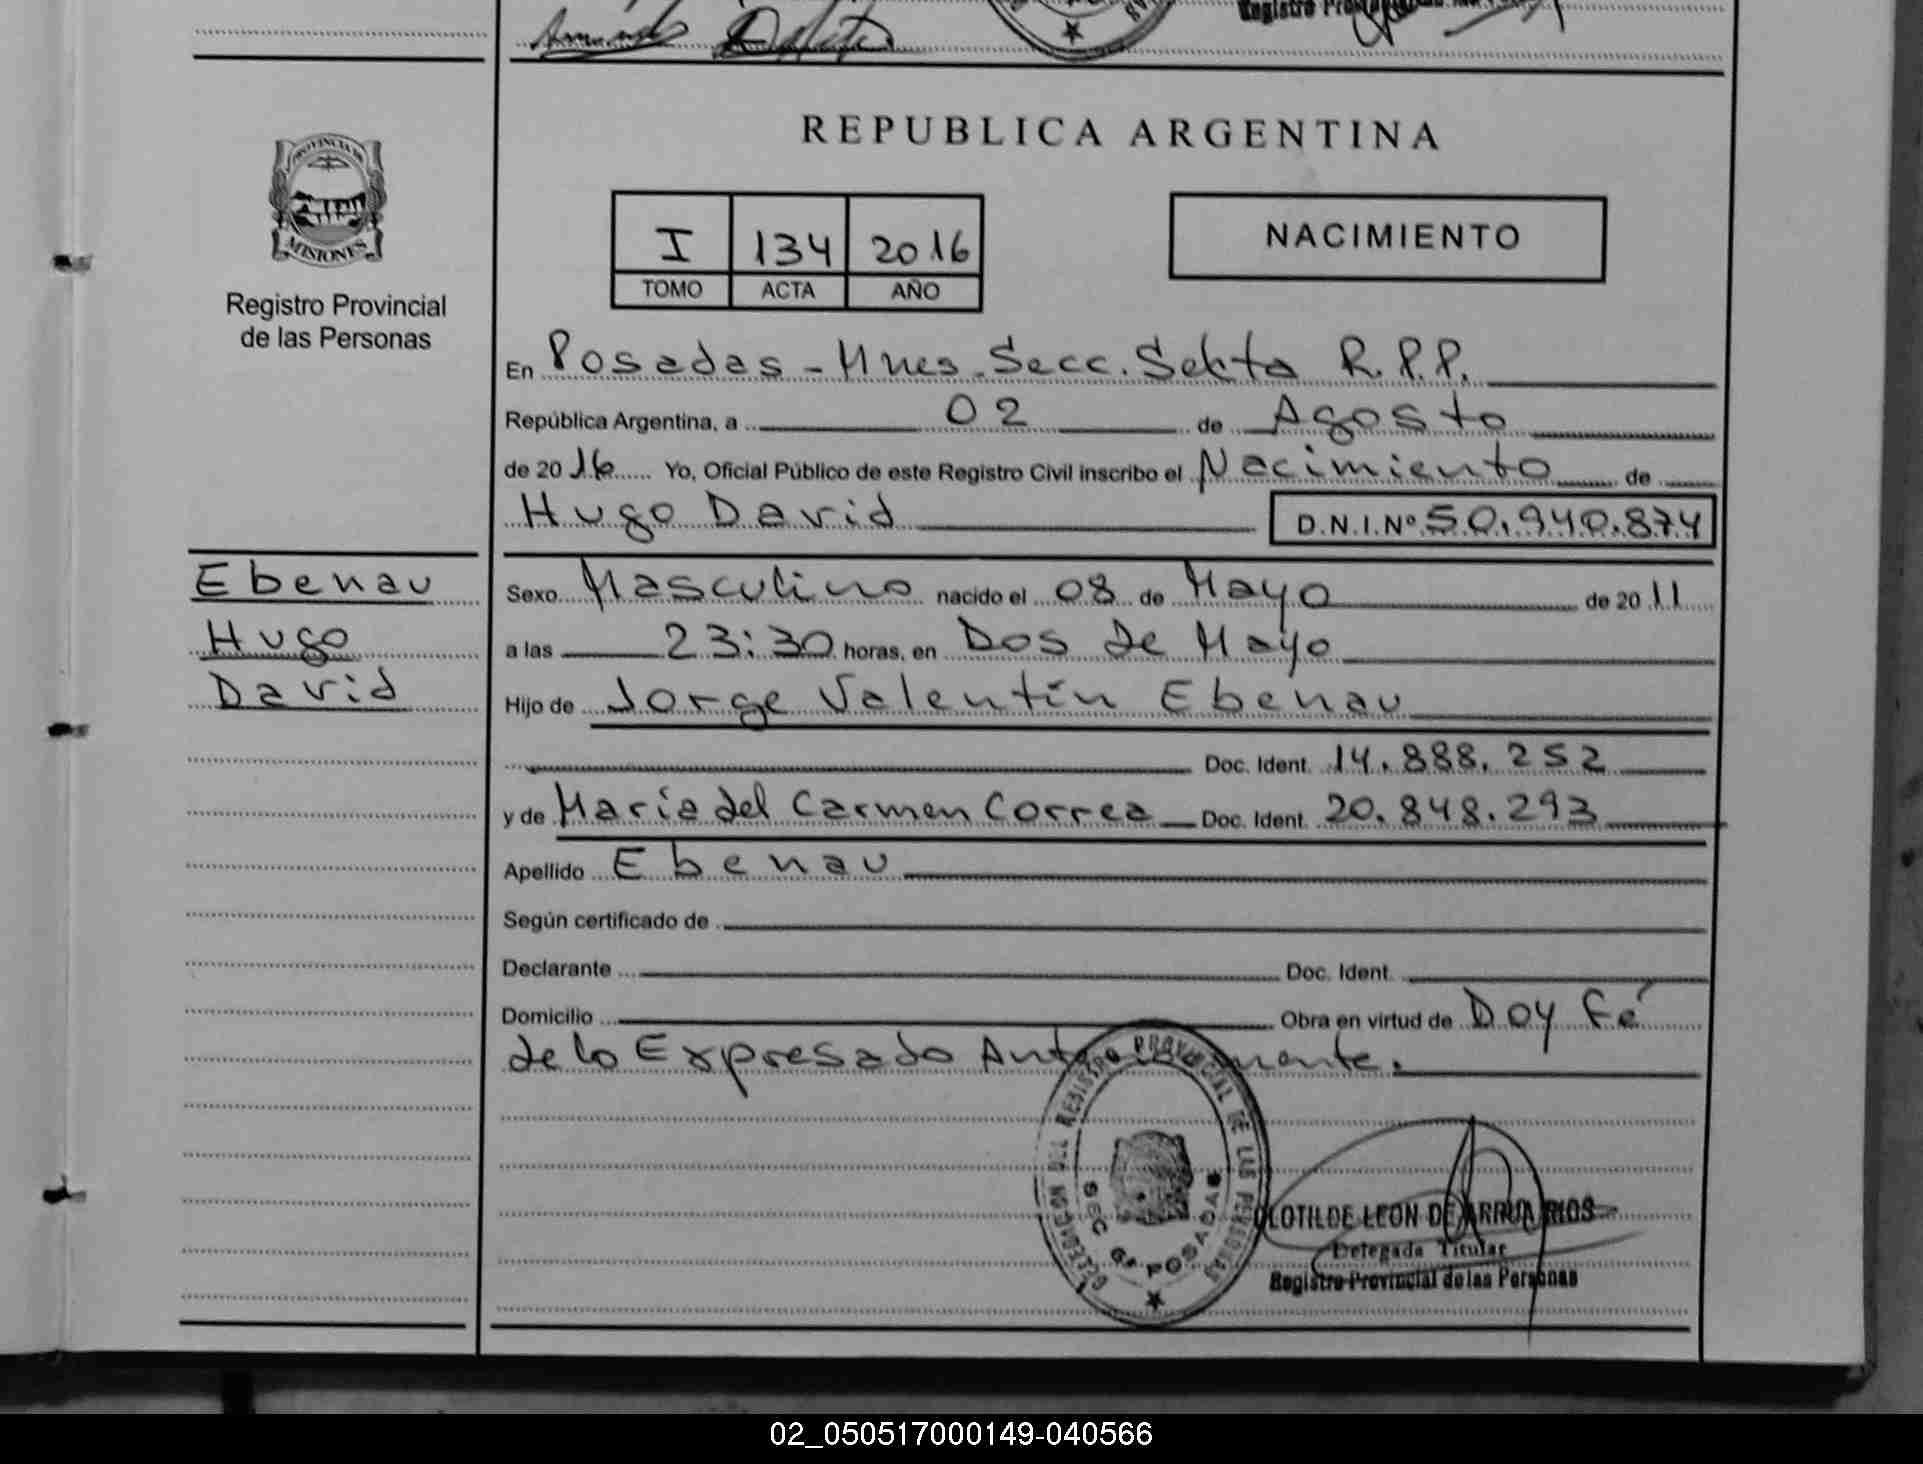 Registro Provincial
REPUBLICA ARGENTINA
PROVINCIA DE
MISIONES
Registro Provincial
de las Personas
I 134 2016
TOMO ACTA AÑO
NACIMIENTO
En Posadas - Mnes. Secc. Sexta R.P.P.
República Argentina, a 02 de Agosto
de 2016 Yo, Oficial Público de este Registro Civil inscribo el Nacimiento de
Hugo David D.N.I.Nº 50.940.874
Ebenau
Hugo
David
Sexo Masculino nacido el 08 de Mayo de 2011
a las 23:30 horas, en Dos de Mayo
Hijo de Jorge Valentín Ebenau
Doc. Ident. 14.888.252
y de María del Carmen Correa Doc. Ident. 20.848.293
Apellido Ebenau
Según certificado de
Declarante Doc. Ident.
Domicilio Obra en virtud de Doy Fé
de lo Expresado Anteriormente.
DELEGACION DEL REGISTRO PROVINCIAL DE LAS PERSONAS
SEC 6ª POSADAS
CLOTILDE LEON DE ARRUA RIOS
Delegada Titular
Registro Provincial de las Personas
02_050517000149-040566